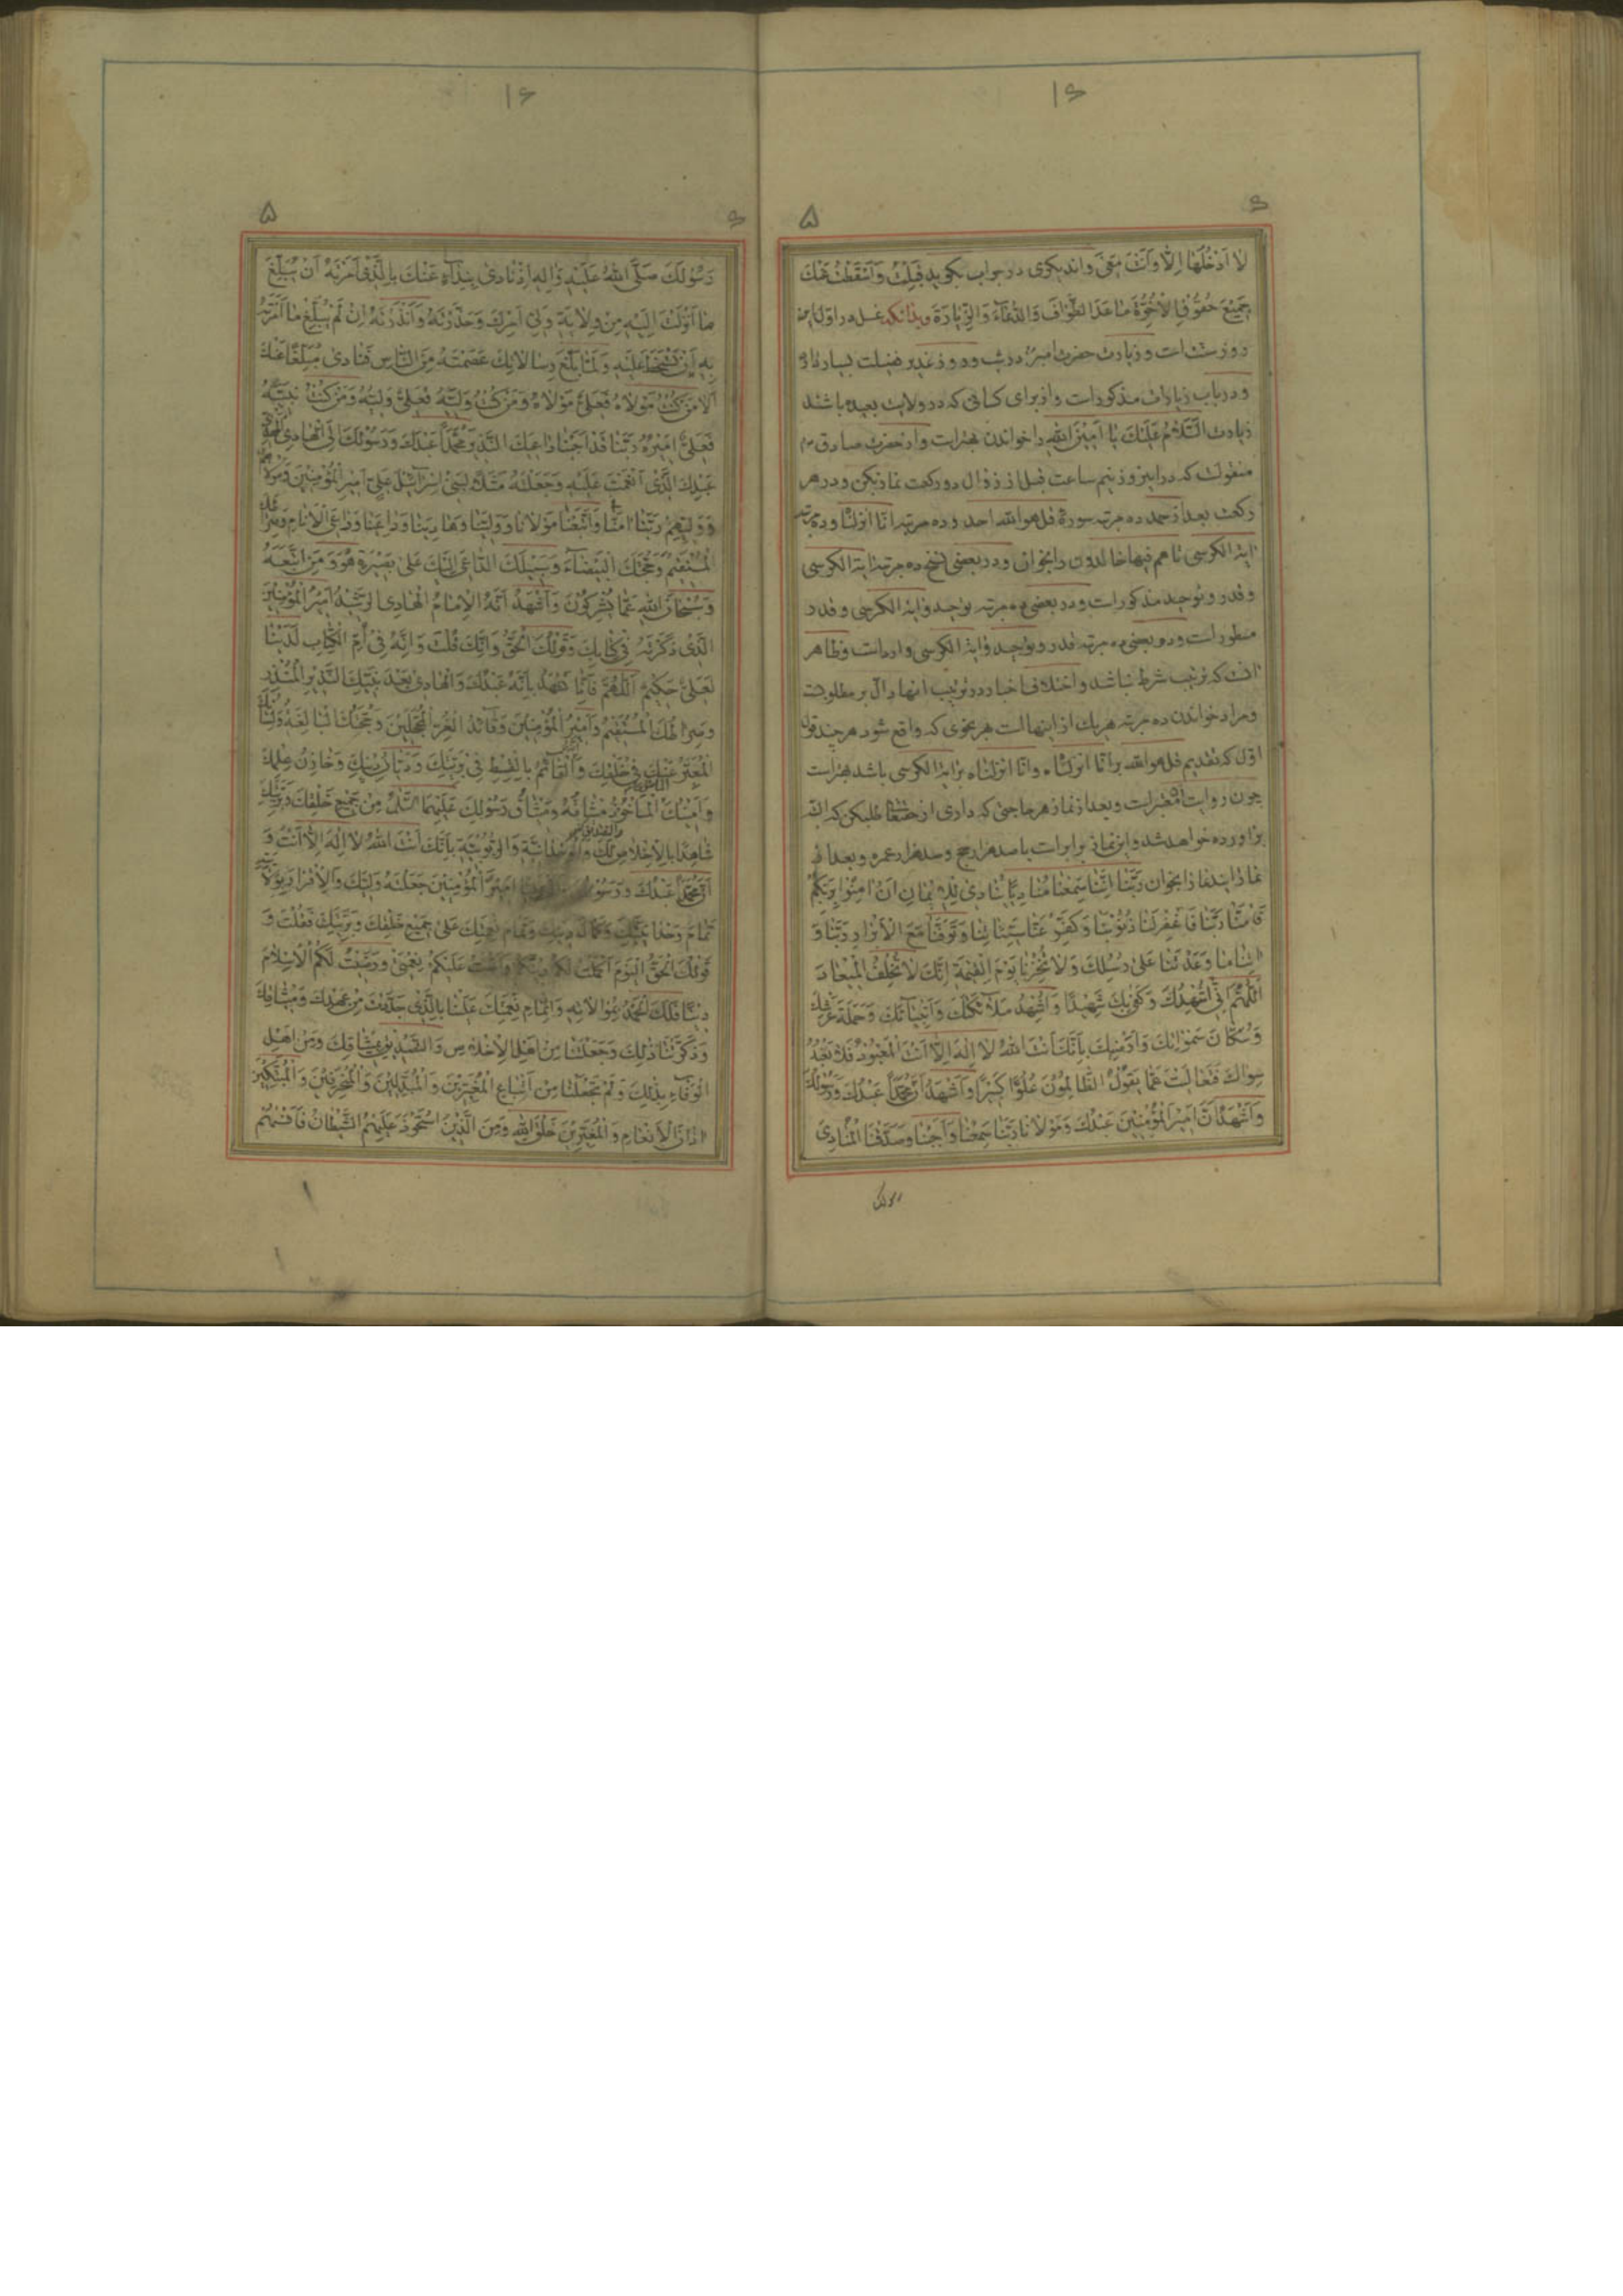 لا ادخلها الا وانت معی واندیکری در جواب بکوید قبلت واسقطت عنک
جمیع حقوق الاخوة ما عدا الطواف والدعاء والزیارة وبدانکه غسل در اول این
روز سنت است و زیارت حضرت امیر در شب و روز غدیر فضیلت بسیار دارد
و در باب زیارات مذکور است و از برای کسانی که در ولایت بعیده باشند
زیارت السلام علیک یا امین الله را خواندن بهتر است واز حضرت صادق م
منقولست که در این روز نیم ساعت قبل از زوال دو رکعت نماز بکن و در هر
رکعت بعد از حمد ده مرتبه سورهٔ قل هو الله احد و ده مرتبه انا انزلنا و ده مرتبه
ایة الکرسی تا هم فیها خالدون را بخوان و در بعضی نسخ ده مرتبه ایة الکرسی
و قدر و توحید مذکور است و در بعضی ده مرتبه توحید و ایة الکرسی و قدر
منظور است و در بعضی ده مرتبه قدر و توحید و ایة الکرسی وارد است و ظاهر
انست که ترتیب شرط نباشد و اختلاف اخبار در ترتیب اینها دال بر مطلوبیت
و مراد خواندن ده مرتبه هر یک از اینهاست هر نحوی که واقع شود هر چند قول
اول که تقدیم قل هو الله بر انا انزلناه وانا انزلناه بر ایة الکرسی باشد بهتر است
چون روایت معتبر است و بعد از نماز هر حاجتی که داری از حقتعالی طلب کن که البته
براورده خواهد شد واین نماز برابر است با صد هزار حج و صد هزار عمره و بعد از
نماز این دعا را بخوان ربنا اننا سمعنا منادیا ینادی للایمان ان امنوا بربکم
فامنا ربنا فاغفر لنا ذنوبنا وکفر عنا سیئاتنا وتوفنا مع الابرار ربنا و
اتنا ما وعدتنا علی رسلک ولا تخزنا یوم القیمة انک لا تخلف المیعاد
اللهم انی اشهدک وکفی بک شهیدا واشهد ملائکتک وانبیائک وحملة عرشک
وسکان سمواتک وارضیک بانک انت الله لا اله الا انت المعبود فلا نعبد
سواک فتعالیت عما یقول الظالمون علوا کبیرا واشهد ان محمدا عبدک ورسولک
واشهد ان امیر المؤمنین عبدک ومولانا ربنا سمعنا واجبنا وصدقنا المنادی
رسولک صلی الله علیه واله اذ نادی بنداء عنک بالذی امرته ان یبلغ
ما انزلت الیه من ولایة ولی امرک وحذرته وانذرته ان لم یبلغ ما امرته
به ان تسخط علیه ولما بلغ رسالاتک عصمته من الناس فنادی مبلغا عنک
الا من کنت مولاه فعلی مولاه ومن کنت ولیه فعلی ولیه ومن کنت نبیه
فعلی امیره ربنا قد اجبنا داعیک النذیر محمدا عبدک ورسولک الی الهادی المهدی
عبدک الذی انعمت علیه وجعلته مثلا لبنی اسرائیل علی امیر المؤمنین ومولاهم
وولیهم ربنا امنا واتبعنا مولانا وولینا وهادینا وداعینا وداعی الانام وصراطک
المستقیم وحجتک البیضاء وسبیلک الداعی الیک علی بصیرة هو ومن اتبعه
وسبحان الله عما یشرکون واشهد انه الامام الهادی الرشید امیر المؤمنین
الذی ذکرته فی کتابک وقولک الحق وانک قلت وانه فی ام الکتاب لدینا
لعلی حکیم اللهم فانا نشهد بانه عبدک والهادی بعد نبیک النذیر المنذر
وصراطک المستقیم وامیر المؤمنین وقائد الغر المحجلین وحجتک البالغة ولسانک
المعبر عنک فی خلقک وانه القائم بالقسط فی بریتک ودیان دینک وخازن علمک
وامینک المأخوذ میثاقه ومیثاق رسولک علیهما السلام من جمیع خلقک وبریتک
شاهدا بالاخلاص لک والوحدانیة والربوبیة بانک انت الله لا اله الا انت و
ان محمدا عبدک ورسولک امیر المؤمنین جعلته ولیک والاقرار بولایته
تمام وحدانیتک وکمال دینک وتمام نعمتک علی جمیع خلقک وبریتک فقلت و
قولک الحق الیوم اکملت لکم دینکم واتممت علیکم نعمتی ورضیت لکم الاسلام
دینا فلک الحمد بموالاته واتمام نعمتک علینا بالذی جددت من عهدک ومیثاقک
وذکرتنا ذلک وجعلتنا من اهل الاخلاص والتصدیق بمیثاقک ومن اهل
الوفاء بذلک ولم تجعلنا من اتباع المغیرین والمبدلین والمنحرفین والمبتکین
اذان الانعام والمغیرین خلق الله ومن الذین استحوذ علیهم الشیطان فانسیهم
رسولک